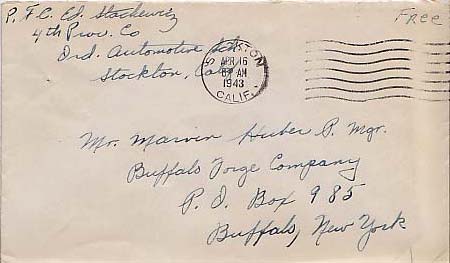 P.F.C. Ed. Stachewiz
4th Prov. Co
Ord. Automotive Sch.
Stockton, Calif.
Free
STOCKTON
APR 16
AM
1943
CALIF.
Mr. Marvin Huber P. Mgr.
Buffalo Forge Company
P. O. Box 985
Buffalo, New York